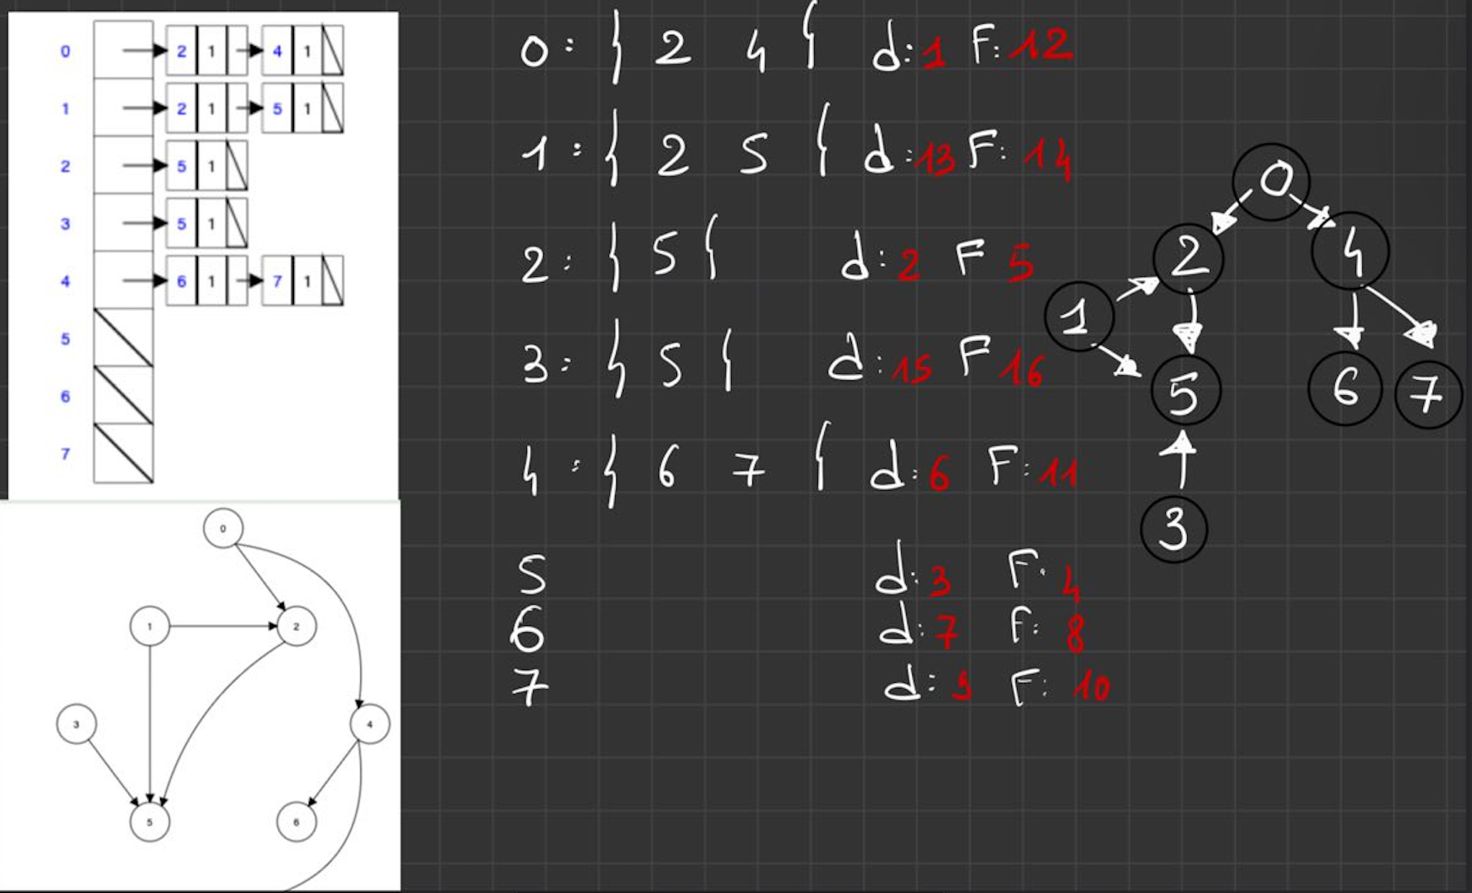 0 2 1 4 1
1 2 1 5 1
2 5 1
3 5 1
4 6 1 7 1
5
6
7
0
1
2
3
4
5
6
0: { 2 4 { d:1 F:12
1: { 2 5 { d:13 F:14
2: { 5 { d:2 F 5
3: { 5 { d:15 F 16
4: { 6 7 { d:6 F:11
5 d:3 F: 4
6 d:7 F: 8
7 d: F: 10
0
2
4
1
5
6
7
3